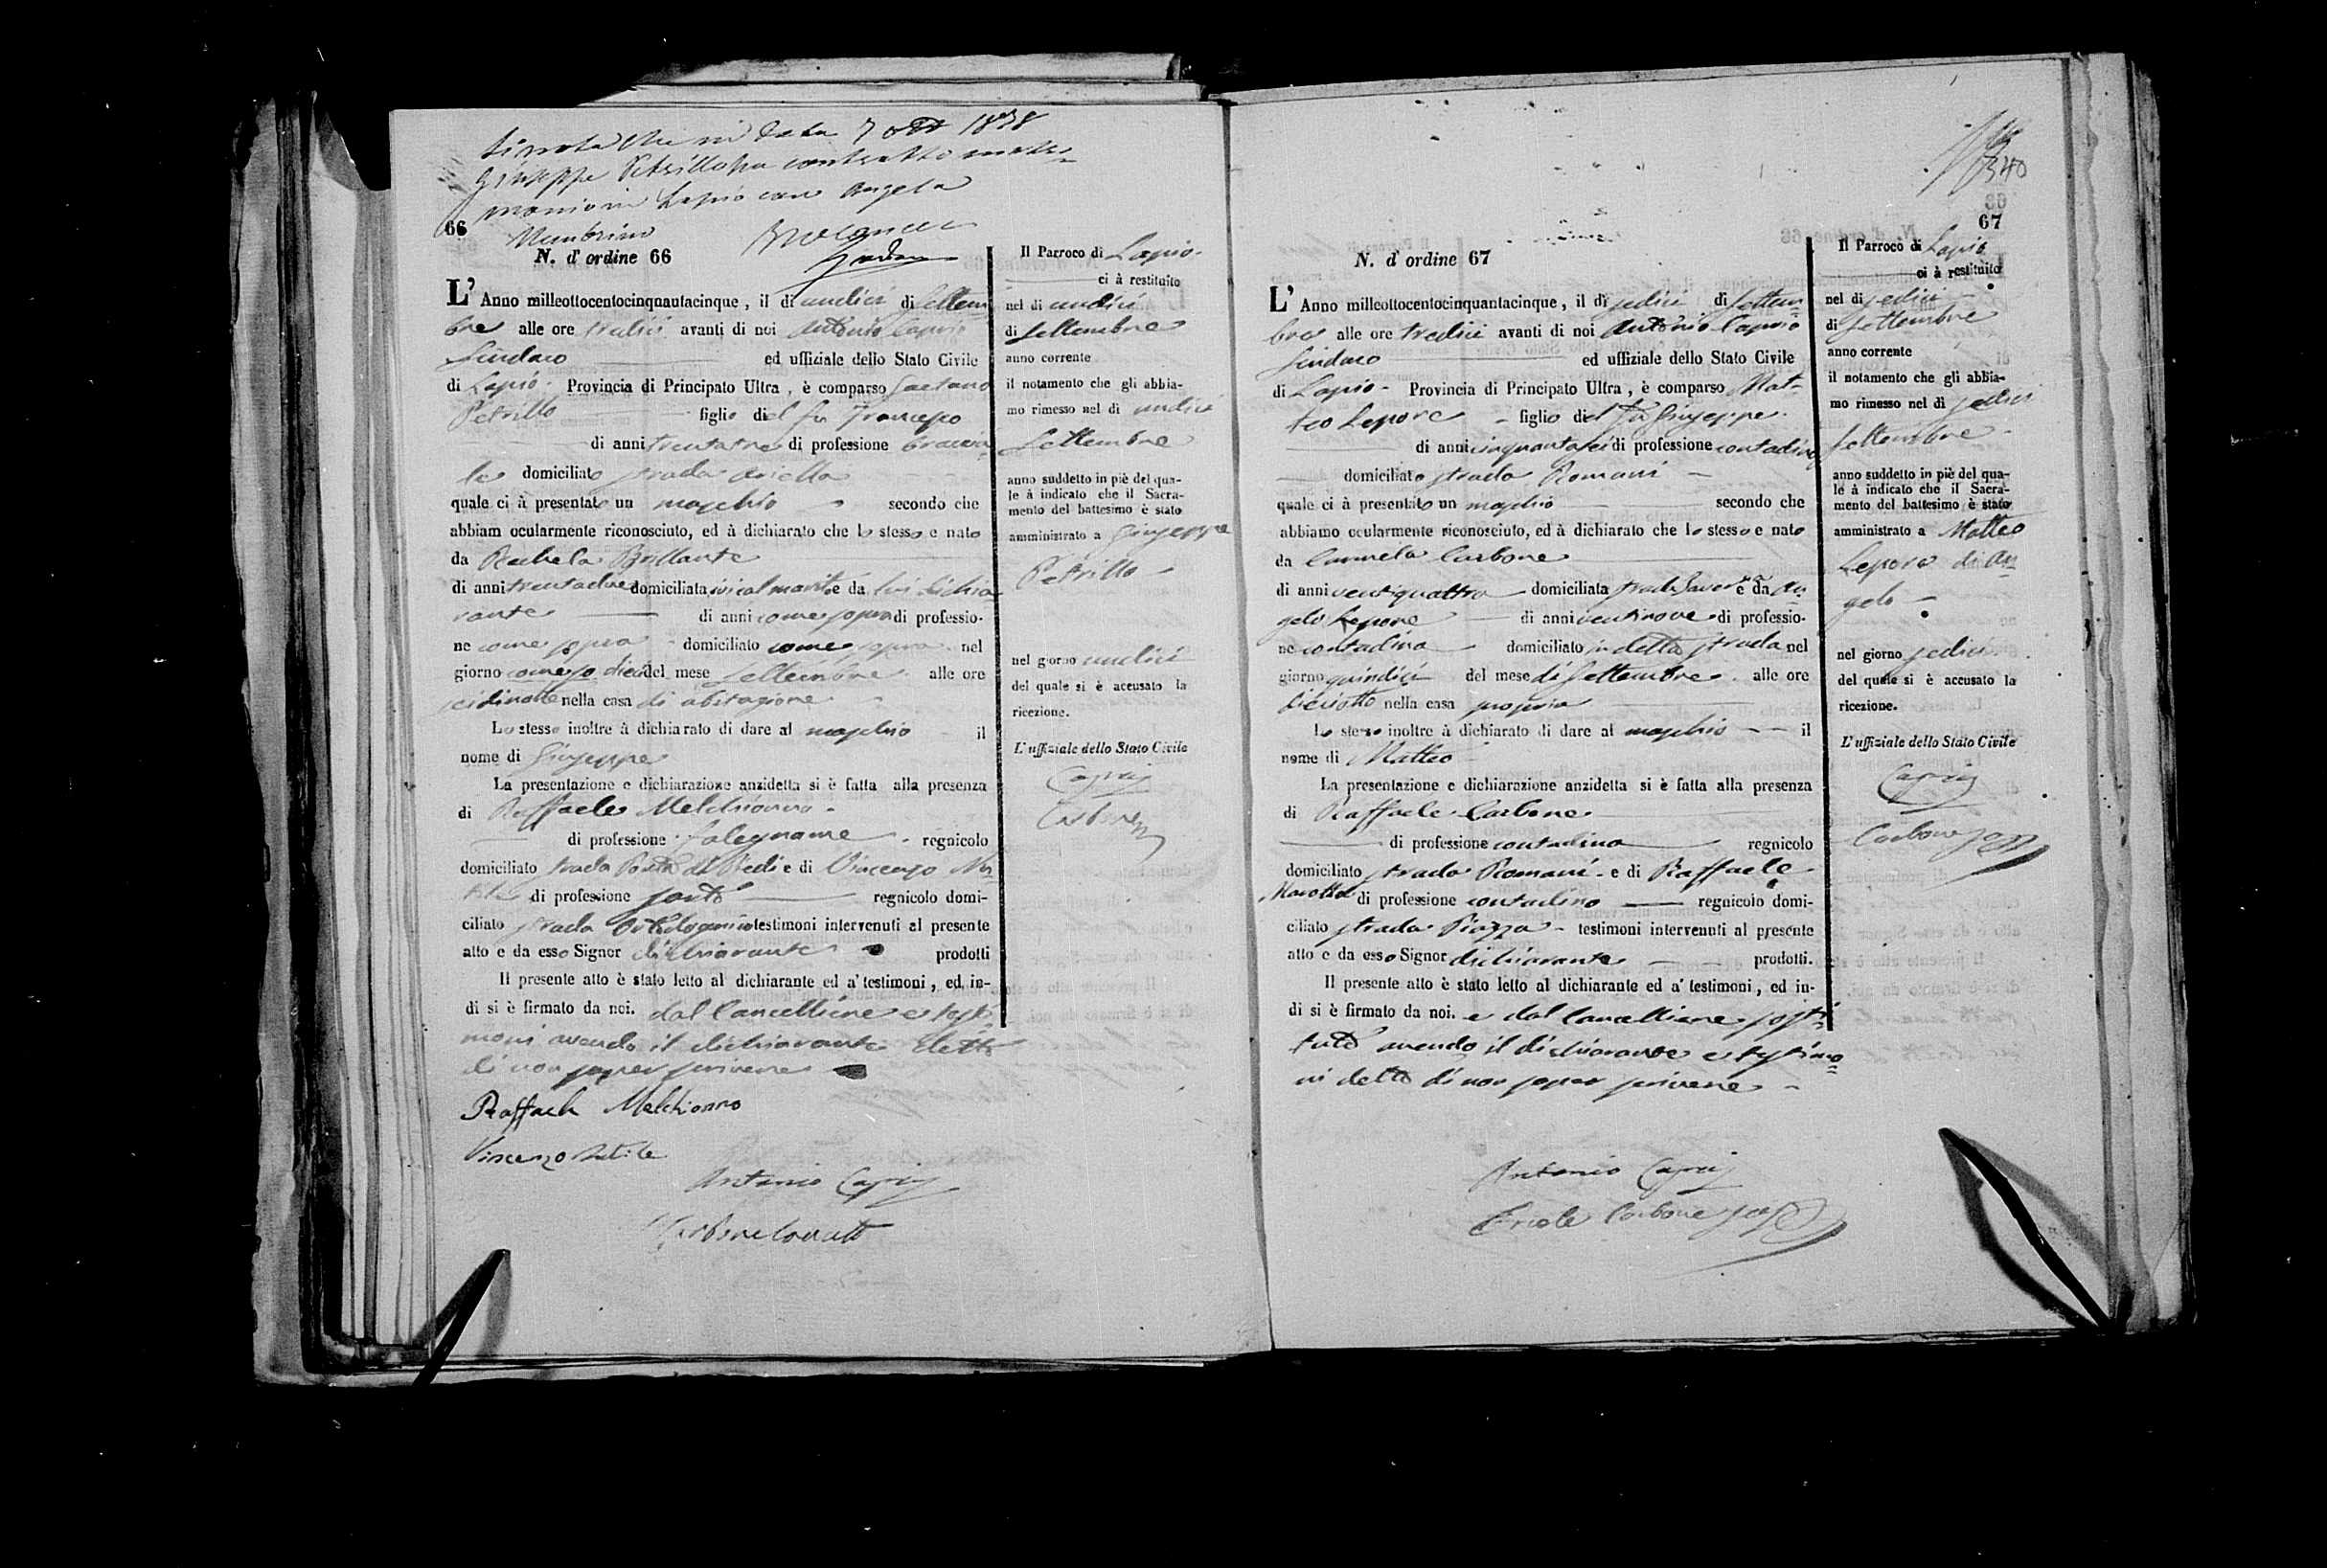 Si nota che in data 7 ott 1878
Giuseppe Petrillo ha contratto matri-
monio in Lapio con Angela
66
Mambrino
N. d' ordine 66
L' Anno milleottocentocinquantacinque, il dì undici di Settem
bre alle ore tredici avanti di noi Antonio Caprio
Sindaco ed uffiziale dello Stato Civile
di Lapio. Provincia di Principato Ultra, è comparso Gaetano
Petrillo figlio del fu Francesco
di anni trentatre di professione braccia
le domiciliato strada
quale ci à presentato un maschio secondo che
abbiam ocularmente riconosciuto, ed à dichiarato che lo stesso e nato
da Rachela Brillante
di anni trentadue domiciliata ivi col marito e da lui dichia
rante di anni come sopra di professio-
ne come sopra domiciliato come sopra nel
giorno dieci del mese Settembre alle ore
nella casa di abitazione
Lo stesso inoltre à dichiarato di dare al maschio il
nome di Giuseppe
La presentazione e dichiarazione anzidetta si è fatta alla presenza
di Raffaele Melchionno
di professione falegname regnicolo
domiciliato strada Porta di Piedi e di Vincenzo
di professione sarto regnicolo domi-
ciliato strada testimoni intervenuti al presente
atto e da esso Signor dichiarante prodotti
Il presente atto è stato letto al dichiarante ed a' testimoni, ed in-
di si è firmato da noi. dal Cancelliere e testi
moni avendo il dichiarante detto
di non saper scrivere
Raffaele Melchionno
Vincenzo
Antonio Caprio
Il Parroco di Lapio.
ci à restituito
nel dì undici
di Settembre
anno corrente
il notamento che gli abbia-
mo rimesso nel dì undici
Settembre
anno suddetto in piè del qua-
le à indicato che il Sacra-
mento del battesimo è stato
amministrato a Giuseppe
Petrillo
nel giorno undici
del quale si è accusato la
ricezione.
L'uffiziale dello Stato Civile
Caprio
Carbone
340
67
N. d' ordine 67
L' Anno milleottocentocinquantacinque, il dì sedici di Settem
bre alle ore tredici avanti di noi Antonio Caprio
Sindaco ed uffiziale dello Stato Civile
di Lapio - Provincia di Principato Ultra, è comparso Mat-
teo Lepore figlio del fu Giuseppe
di anni cinquantasei di professione contadino
domiciliato strada Romani
quale ci à presentato un maschio secondo che
abbiamo ocularmente riconosciuto, ed à dichiarato che lo stesso e nato
da Carmela Carbone
di anni ventiquattro domiciliata strada e da An
gelo Lepore di anni ventinove di professio-
ne contadino domiciliato in detta strada nel
giorno quindici del mese di Settembre alle ore
diciotto nella casa propria
Lo stesso inoltre à dichiarato di dare al maschio il
nome di Matteo
La presentazione e dichiarazione anzidetta si è fatta alla presenza
di Raffaele Carbone
di professione contadino regnicolo
domiciliato strada Romani - e di Raffaele
Marotta di professione contadino regnicolo domi-
ciliato strada Piazza - testimoni intervenuti al presente
atto e da esso Signor dichiarante prodotti.
Il presente atto è stato letto al dichiarante ed a' testimoni, ed in-
di si è firmato da noi. e dal Cancelliere sosti
tuto avendo il dichiarante e testimo
ni detto di non saper scrivere -
Antonio Caprio
Ercole Carbone
Il Parroco di Lapio
ci à restituito
nel dì sedici
di Settembre
anno corrente
il notamento che gli abbia-
mo rimesso nel dì sedici
Settembre
anno suddetto in piè del qua-
le à indicato che il Sacra-
mento del battesimo è stato
amministrato a Matteo
Lepore di An
gelo
nel giorno sedici
del quale si è accusato la
ricezione.
L'uffiziale dello Stato Civile
Caprio
Carbone